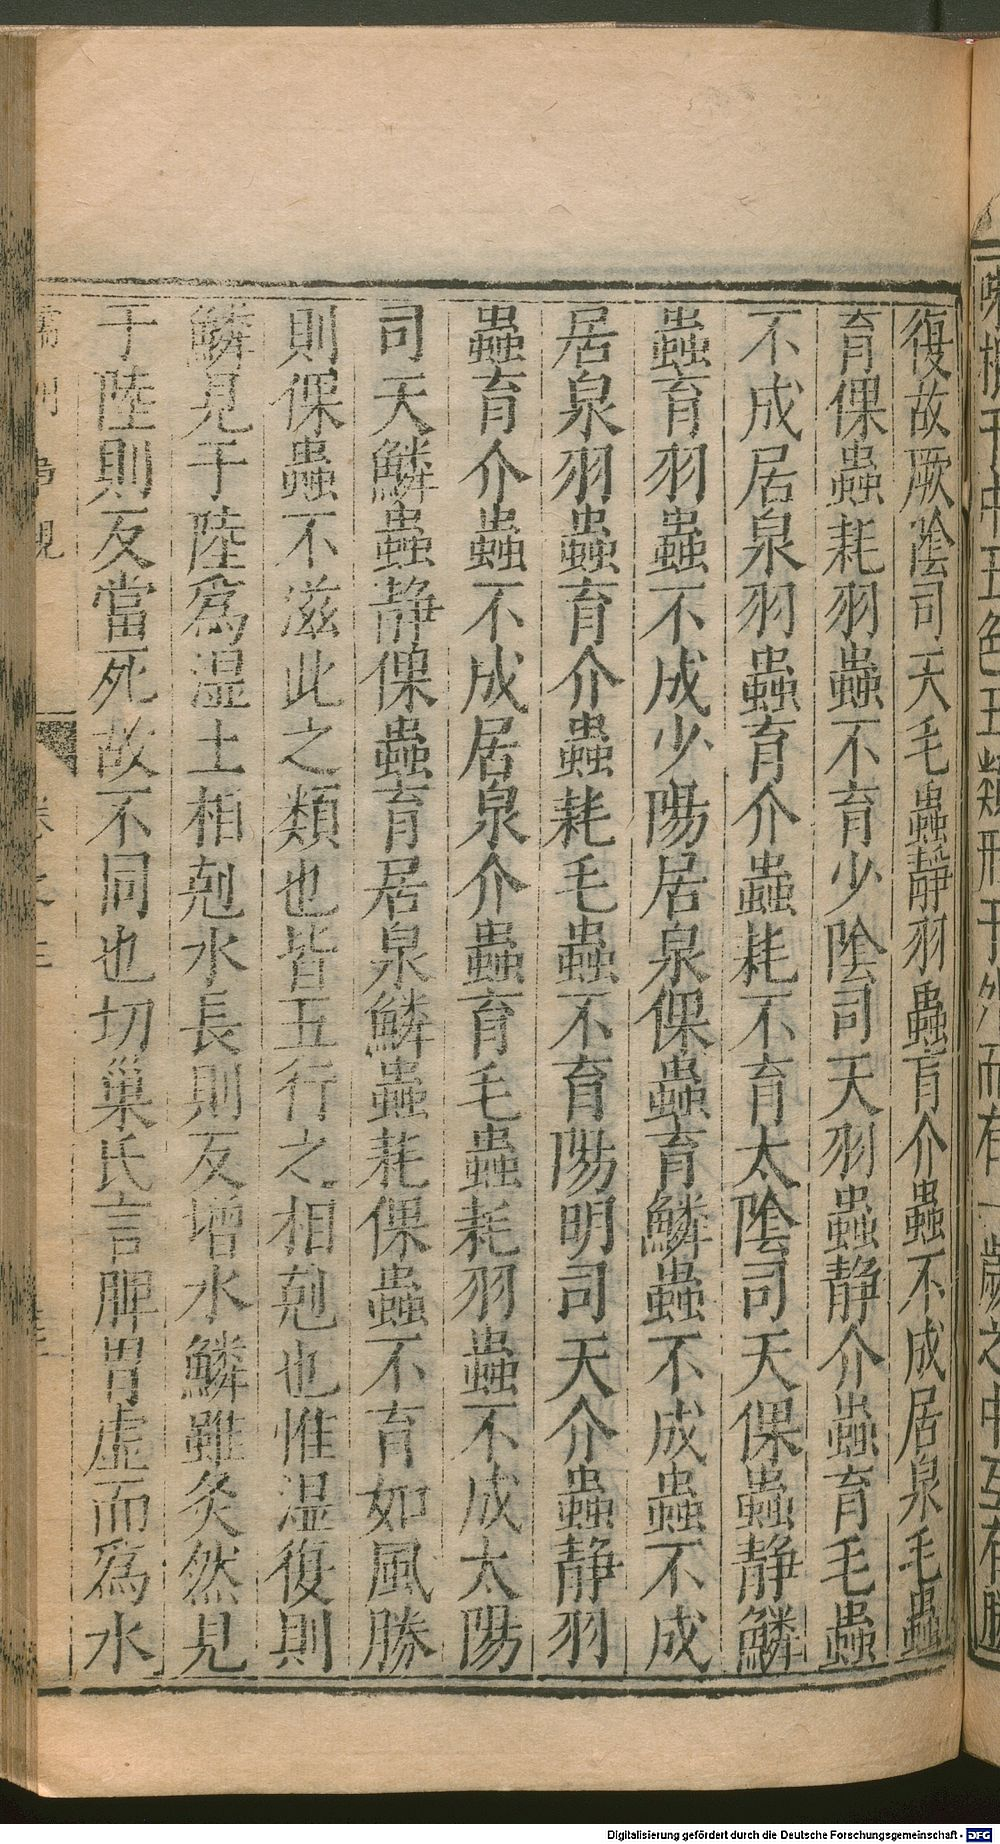 復故厥陰司天毛蟲靜羽蟲育介蟲不成居泉毛蟲
育倮蟲耗羽蟲不育少陰司天羽蟲静介蟲育毛蟲
不成居泉羽蟲育介蟲耗不育太陰司天倮蟲静鱗
蟲育羽蟲不成少陽居泉倮蟲育鱗蟲不成蟲不成
居泉羽蟲育介蟲耗毛蟲不育陽明司天介蟲静羽
蟲育介蟲不成居泉介蟲育毛蟲耗羽蟲不成太陽
司天鱗蟲静倮蟲育居泉鱗蟲耗倮蟲不育如風勝
則倮蟲不滋此之類也皆五行之相剋也惟湿復則
鱗見于陸爲湿土相剋水長則反增水鱗雖災然見
于陸則反當死故不同也切巢氏言脾胃虚而爲水
儒門事親 卷之三
Digitalisierung gefördert durch die Deutsche Forschungsgemeinschaft - DFG